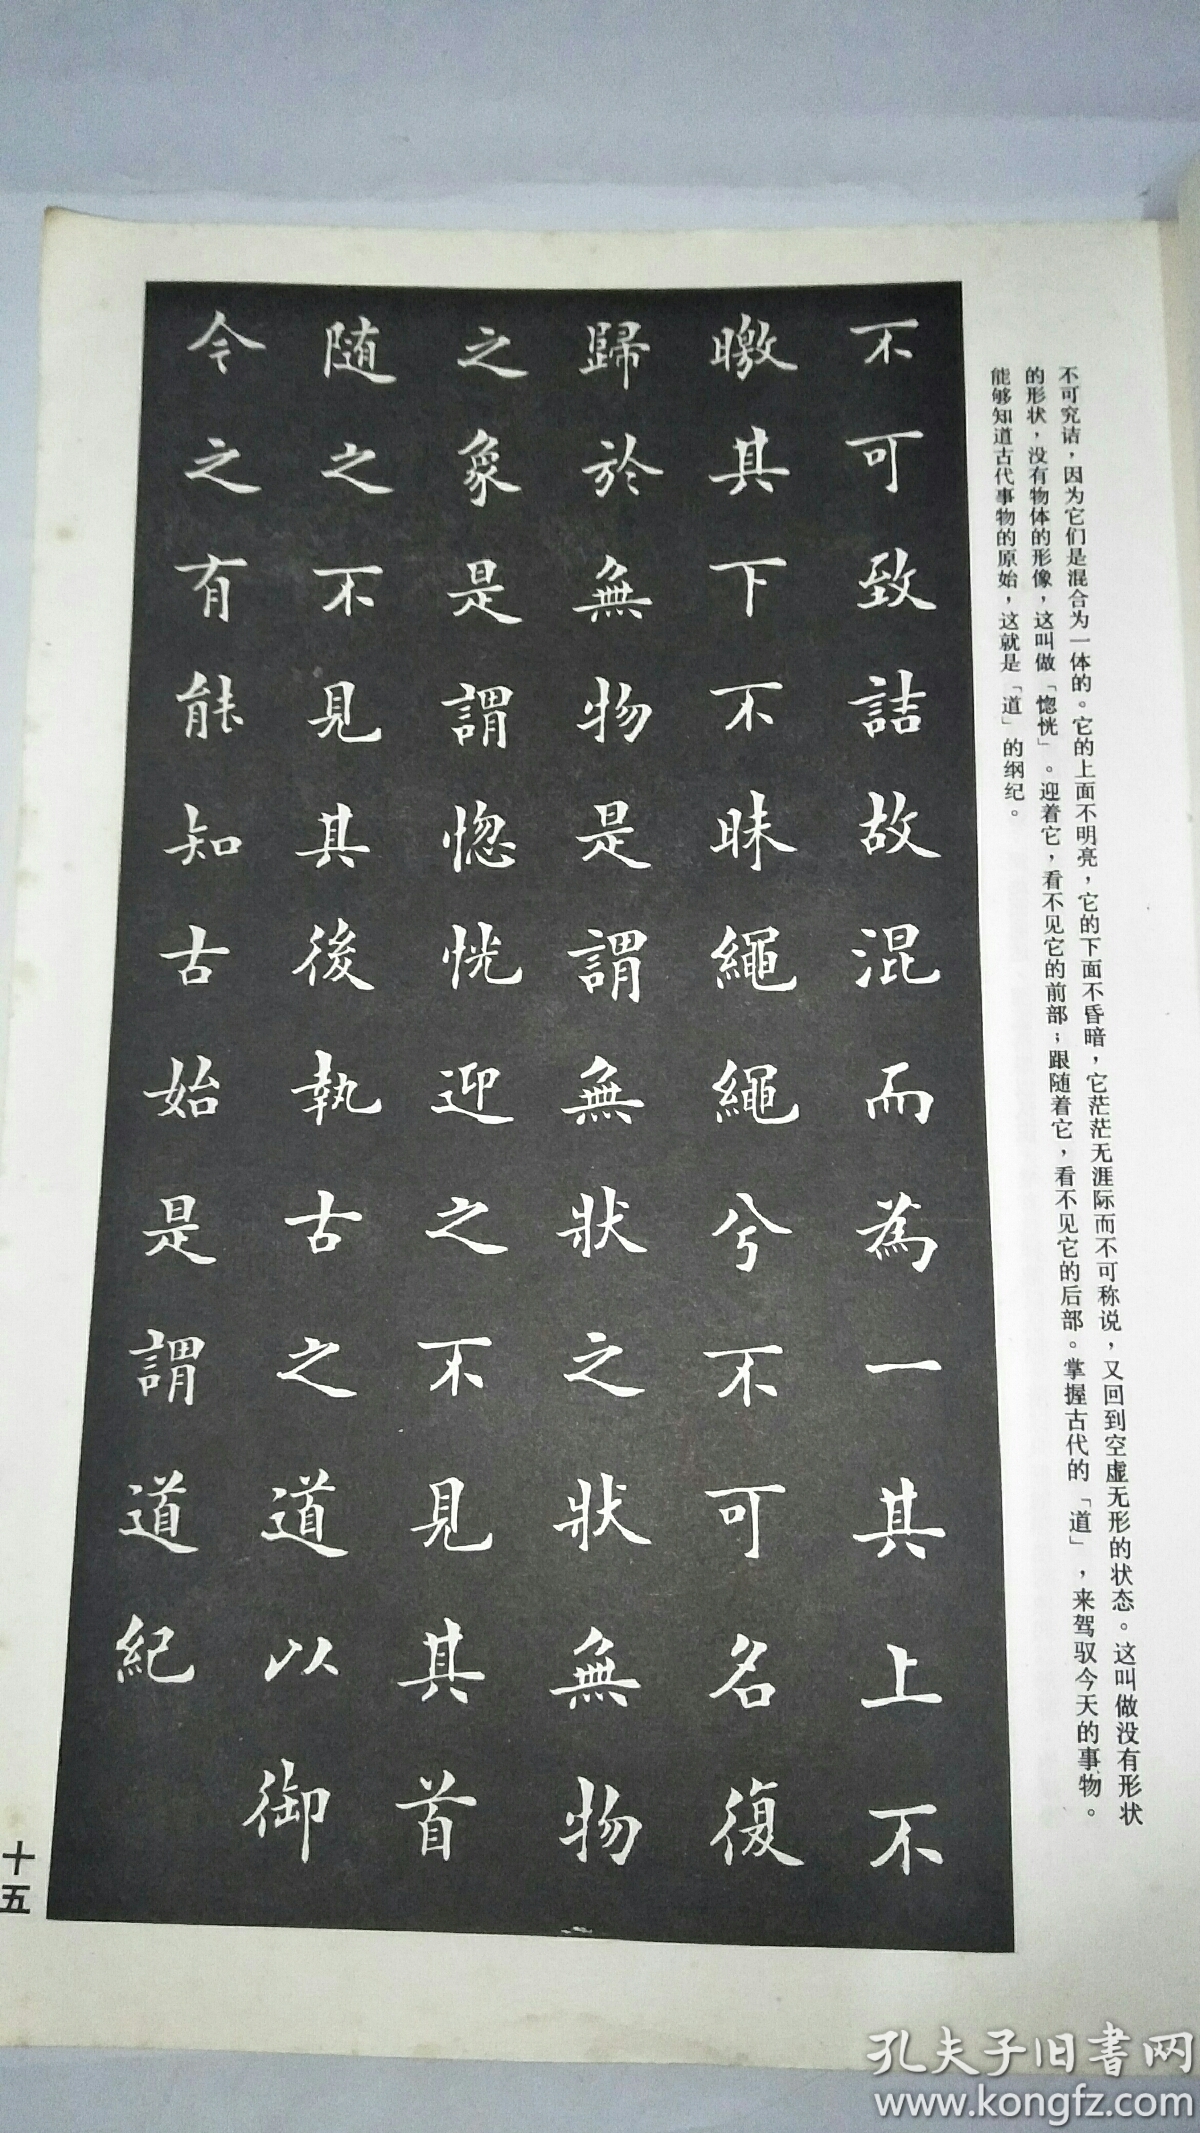 不可究诘，因为它们是混合为一体的。它的上面不明亮，它的下面不昏暗，它茫茫无涯际而不可称说，又回到空虚无形的状态。这叫做没有形状
的形状，没有物体的形像，这叫做「惚恍」。迎着它，看不见它的前部；跟随着它，看不见它的后部。掌握古代的「道」，来驾驭今天的事物。
能够知道古代事物的原始，这就是「道」的纲纪。
不可致詰故混而為一其上不
曒其下不昧繩繩兮不可名復
歸於無物是謂無狀之狀無物
之象是謂惚恍迎之不見其首
随之不見其後執古之道以御
今之有能知古始是謂道紀
十五
孔夫子旧書网
www.kongfz.com